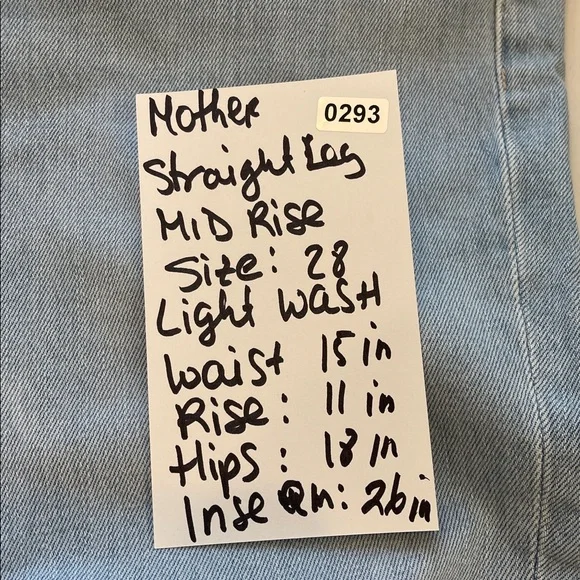 Mother
0293
Straight Leg
MID Rise
Size: 28
Light Wash
Waist 15 in
Rise: 11 in
Hips: 18 in
Inseam: 26 in